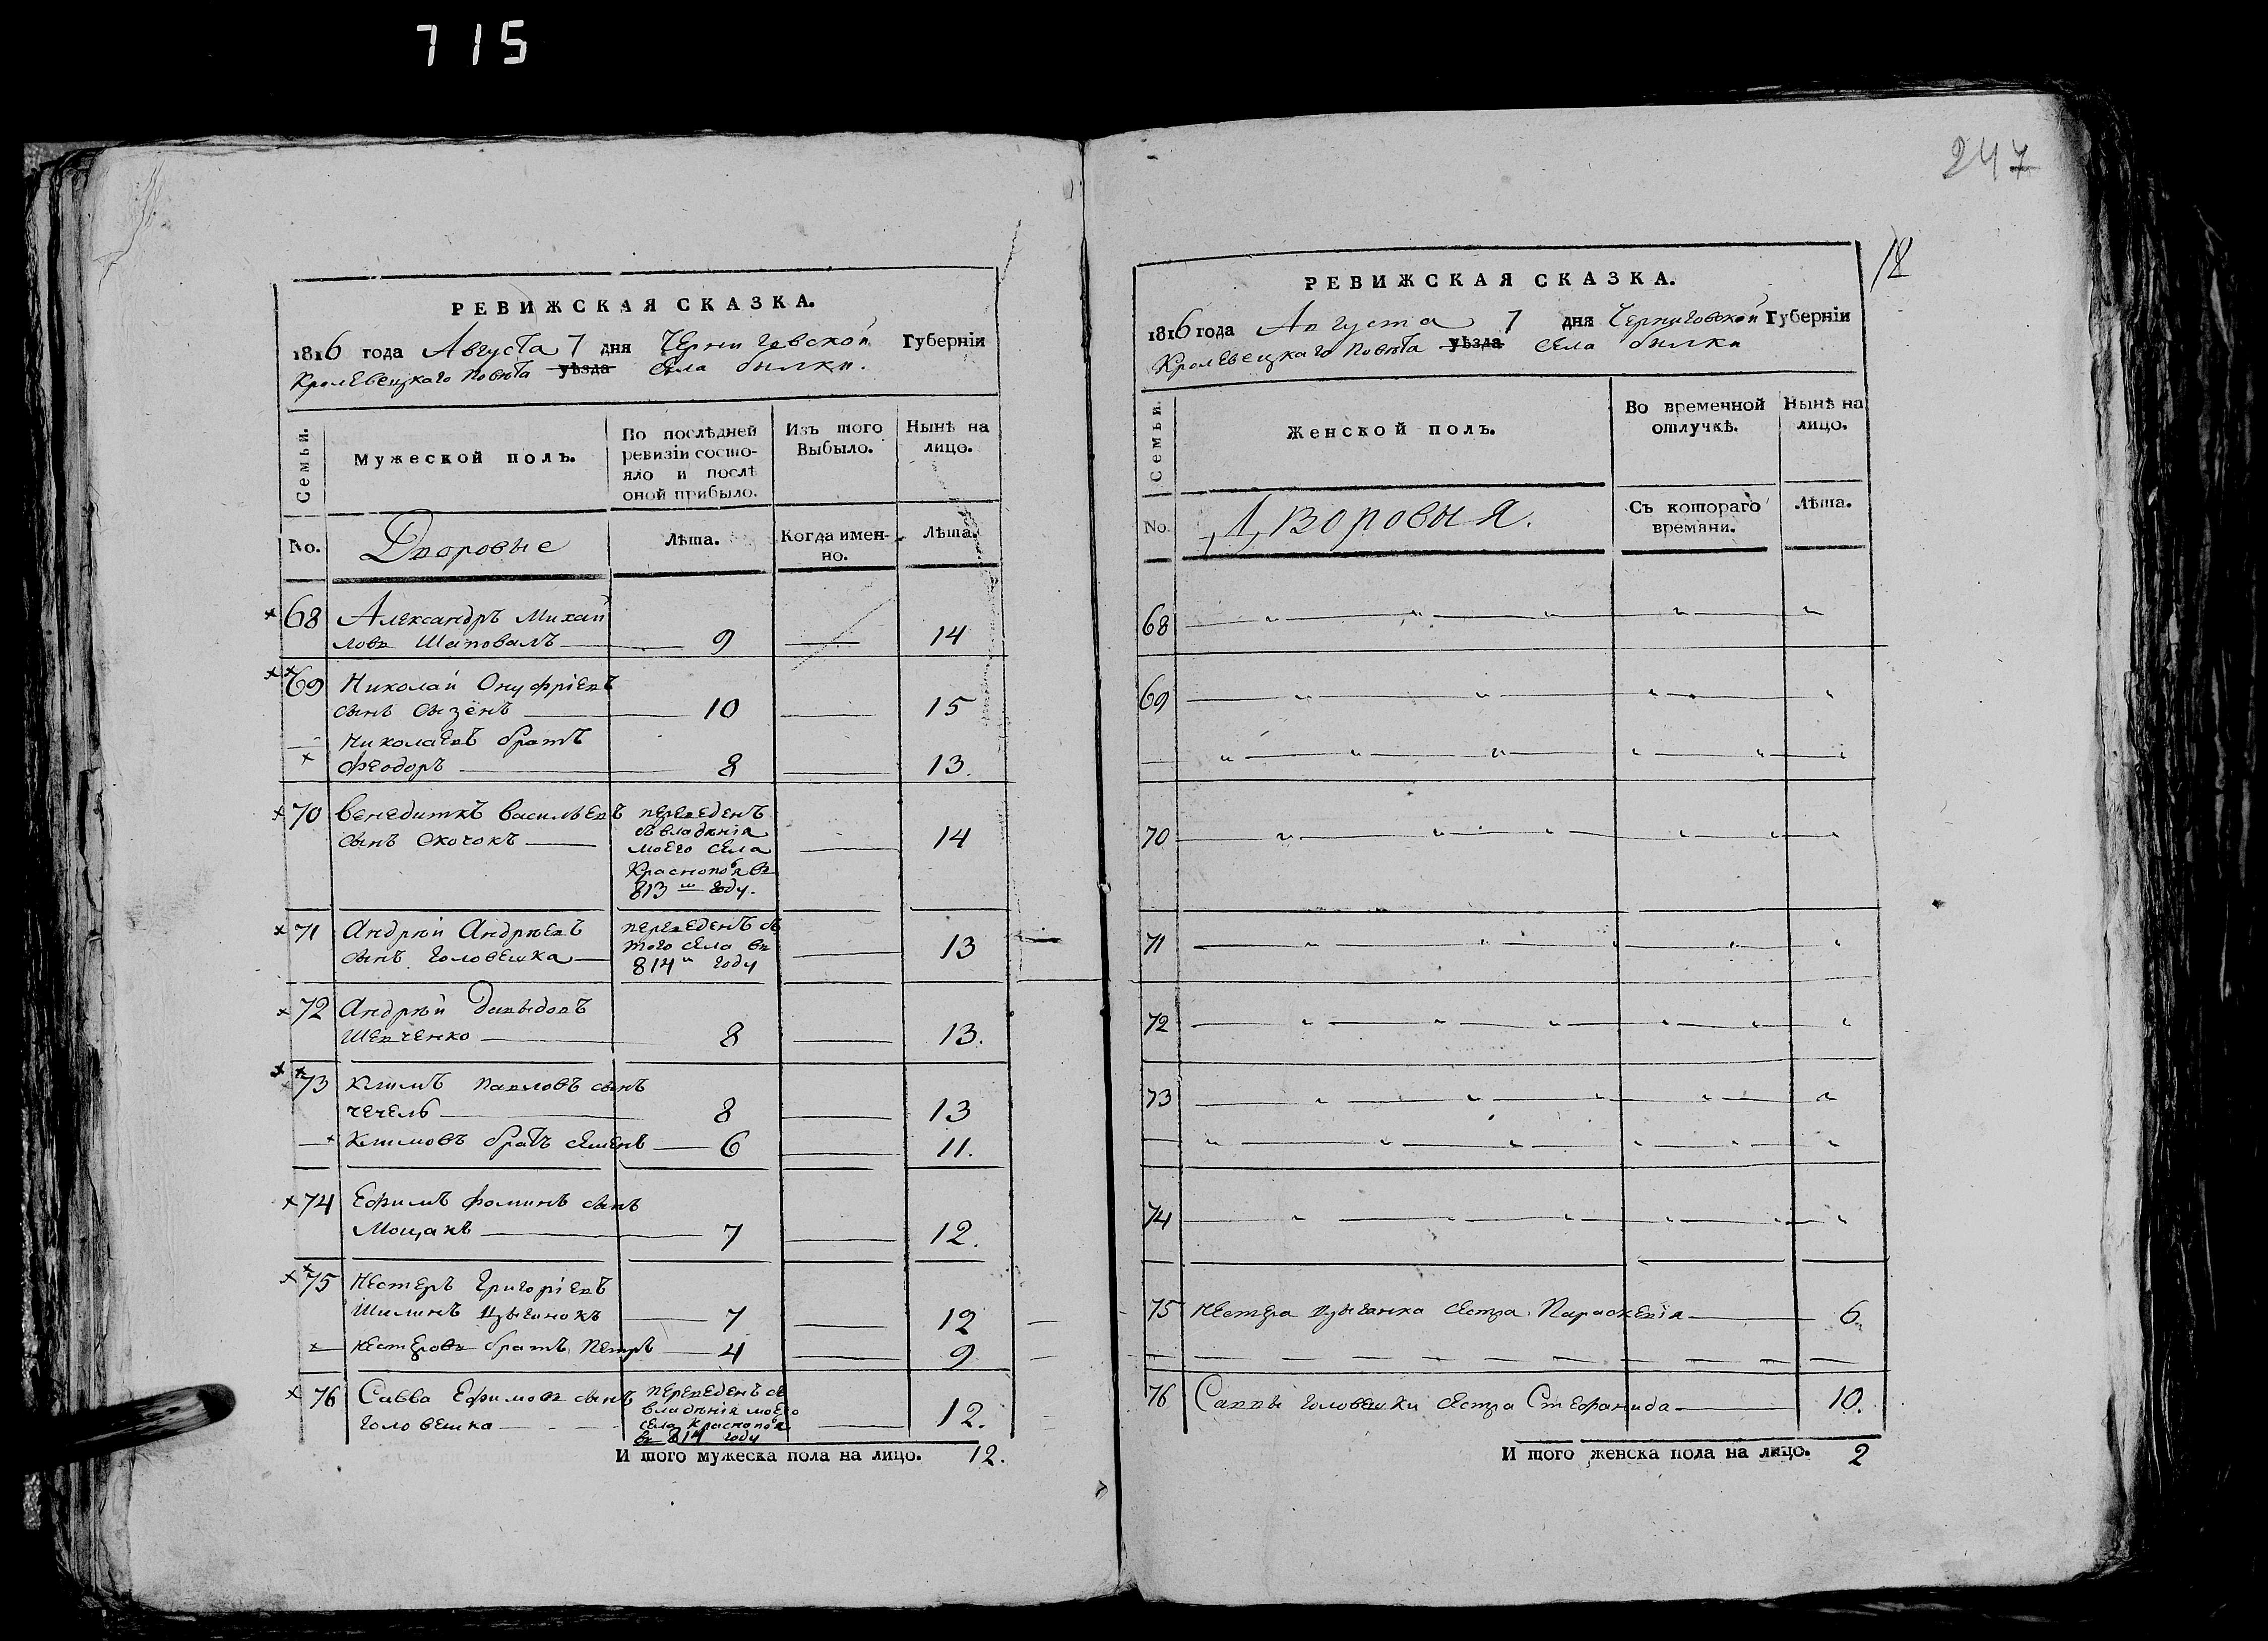 715
247
18
РЕВИЖСКАЯ СКАЗКА.
1816 года Августа 7 дня Черниговской Губерніи
Кролевецкаго Повѣта уѣзда Села билки.
Семьи.
Мужеской полъ.
По послѣдней
ревизіи состо-
яло и послѣ
оной прибыло.
Изъ того
Выбыло.
Нынѣ на
лицо.
No.
Дворовые
Лѣта.
Когда имен-
но.
Лѣта.
68 Александръ Михай
ловъ Шаповалъ 9 14
69 Николай Онуфріевъ
сынъ 10 15
Николаевъ братъ
Феодоръ 8 13.
70 Венедиктъ Васильевъ
сынъ Скочокъ 14
переведенъ
съ владѣнія
моего села
Краснополя въ
813 м году.
71 Андрѣй Андрѣевъ
сынъ Головешка 13
переведенъ съ
того села въ
814 м году
72 Андрѣй Давыдовъ
Шевченко 8 13.
73 Климъ Павловъ сынъ
чечель 8 13
Климовъ братъ Семенъ 6 11.
74 Ефимъ Фоминъ сынъ
Мощакъ 7 12.
75 Нестеръ Григоріевъ
Шилинъ Цыганокъ 7 12
Нестеровъ братъ Петръ 4 9
76 Савва Ефимовъ сынъ
Головешка 12.
переведенъ съ
владѣнія моего
села Краснополя
въ 814 году
И того мужеска пола на лицо. 12.
РЕВИЖСКАЯ СКАЗКА.
1816 года Августа 7 дня Черниговской Губерніи
Кролевецкаго Повѣта уѣзда Села билки
Семьи.
Женской полъ.
Во временной
отлучкѣ.
Нынѣ на
лицо.
No.
Дворовыя.
Съ котораго
времяни.
Лѣта.
68
69
70
71
72
73
74
75 Нестера Цыганка сестра Параскевія 6.
76 Саввы Головешки сестра Стефанида 10.
И того женска пола на лицо. 2